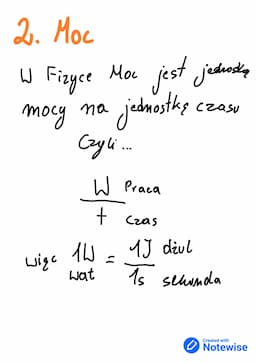 2. Moc
W Fizyce Moc jest jednostką
mocy na jednostkę czasu
Czyli...
W Praca
t czas
więc 1W = 1J dżul
wat 1s sekunda
Created with
Notewise